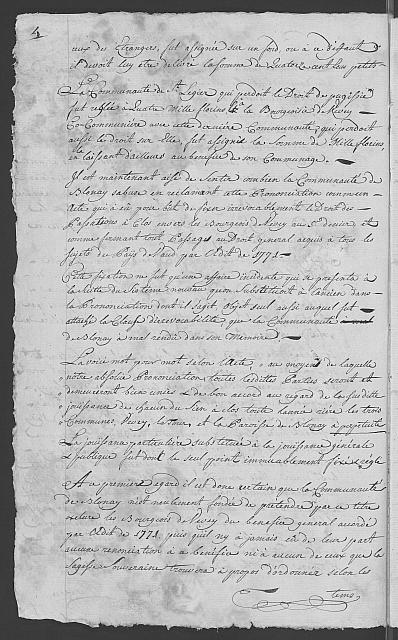 4
eux des Etrangers, fut assignée sur un fond, ou a ce deffaut
il devoit luy être delivré la somme de Quatorze cent
La Communauté de St. Legier qui perdoit le Droit de
fut reglée à Quatre Mille florins, & la Bourgeoisie de Vevey
Co-Communiere avec cette derniere Communauté, qui perdoit
aussi le droit sur Elle, fut assigné la Somme de Mille florins
en laissant d'ailleurs au benefice de son Communage.
Il est maintenant aisé de Sentir combien la Communauté de
Blonay s'abuse en reclamant cette Prononciation comme un
Acte qui a eû pour but de fixer irrevocablement le Droit de
Passations à Clos envers les Bourgeois de Vevey au denier, et
comme fermant tout Passage au Droit general acquis à tous les
Sujets du Pays de Vaud par l'Edit de 1771
Cette fixation ne fut qu'une affaire incidente qui se presenta à
la suitte du Sisteme nouveau qu'on Substituoit à l'ancien dans
la Prononciation dont il s'agit, Objet seul auquel fut
attaché la Clause d'irrevocabilité, que la Communauté
de Blonay a mal rendüe dans son Memoire.
La voicy mot pour mot selon l'Acte, „ au moyen de laquelle
notre absolüe Prononciation, toutes lesdittes Parties seront et
demeureront bien unies & de bon accord au regard de la susditte
jouissance de chacun du Sien à clos toute l'année riere les trois
Communes, Vevey, la Tour, et la Paroisse de Blonay à perpetuité
La jouissance particuliere substituée à la jouissance generale
& publique fut donc le seul point immuablement fixé & reglé
A ce premier egard il est donc certain que la Communauté
de Blonay n'est nullement fondée de pretendre par ce titre
exclure les Bourgeois de Vevey du benefice general accordé
par l'Edit de 1771 puis qu'il n'y a jamais eû de leur part
aucune renonciation à ce benefice ni à aucun de ceux que la
Sagesse Souveraine trouvera à propos d'ordonner selon les
tems